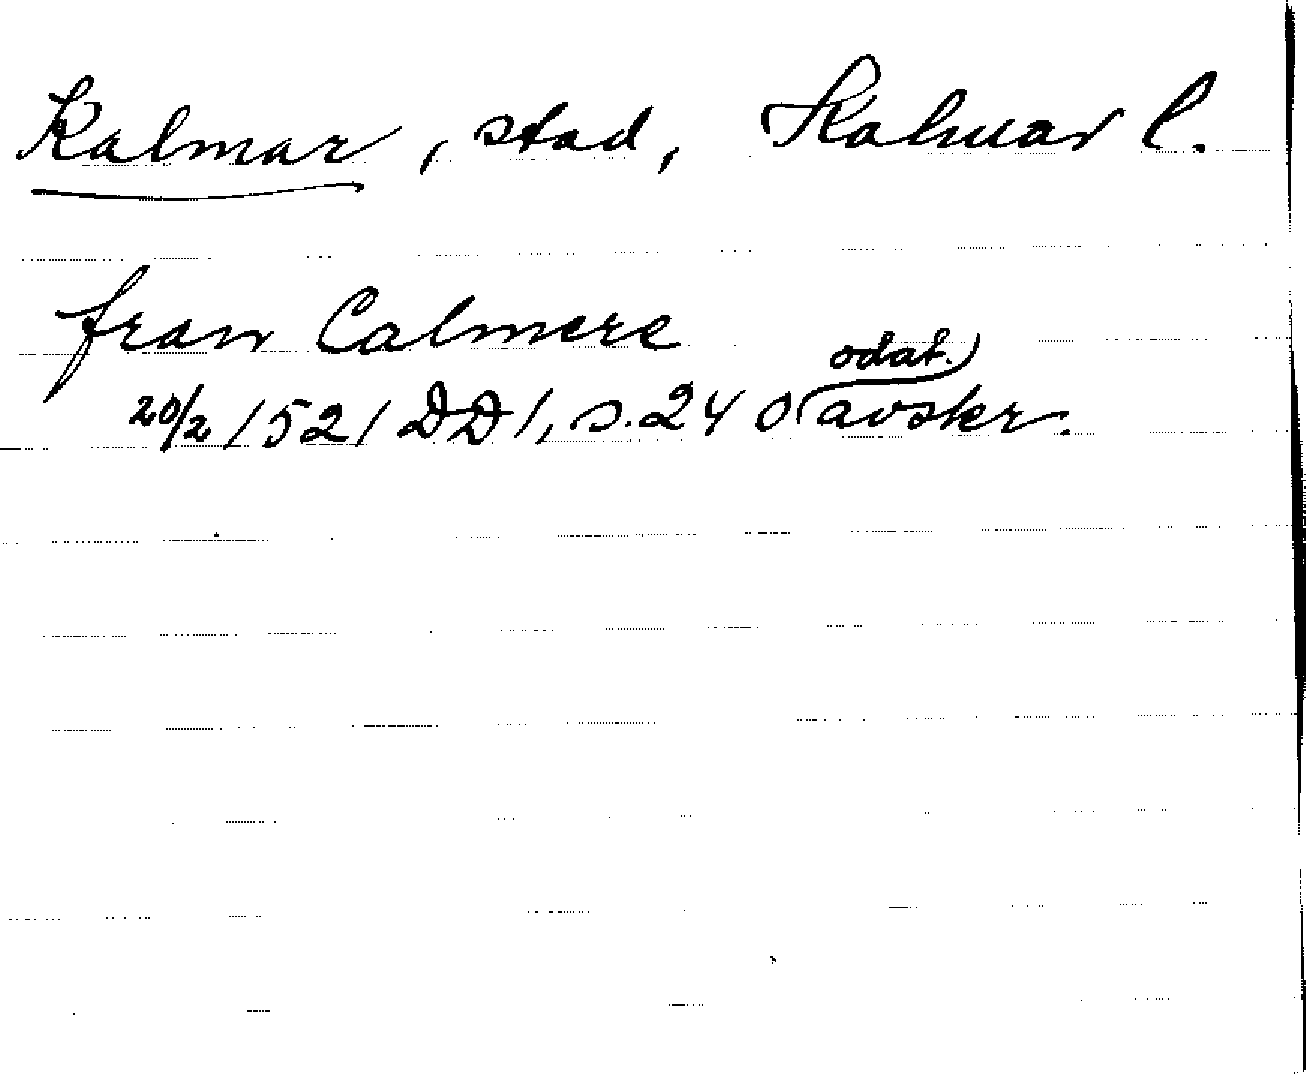 Kalmar, stad, Kalmar l.
fran Calmere
odat.)
20/2 1521 DD1, s. 240 (avskr.